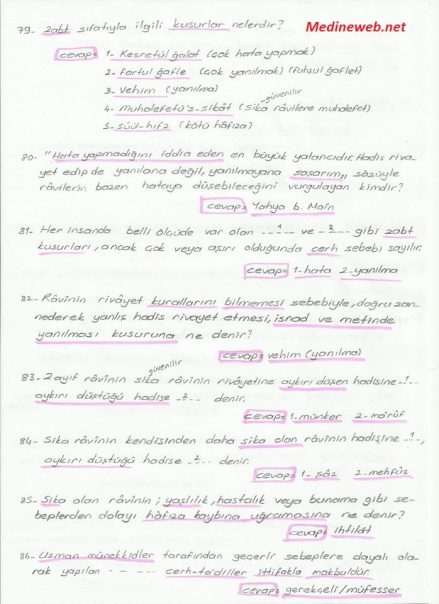 79- Zabt sıfatıyla ilgili kusurlar nelerdir? Medineweb.net
cevap: 1- Kesretül ğalat (çok hata yapmak)
2- fartul ğafle (çok yanılmak) (fuhşul ğaflet)
3- Vehim (yanılma)
güvenilir
4- Muhalefetü's-sikât (sika râvilere muhalefet)
5- Sûül-hıfz (kötü hâfıza)
80- "Hata yapmadığını iddia eden en büyük yalancıdır. Hadis riva-
yet edip de yanılana değil, yanılmayana şaşarım," sözüyle
râvilerin bazen hataya düşebileceğini vurgulayan kimdir?
cevap: Yahya b. Main
81- Her insanda belli ölçüde var olan ..1.. ve ..2.. gibi zabt
kusurları, ancak çok veya aşırı olduğunda cerh sebebi sayılır.
cevap: 1-hata 2-yanılma
82- Râvinin rivâyet kurallarını bilmemesi sebebiyle, doğru zan-
nederek yanlış hadis rivayet etmesi, isnad ve metinde
yanılması kusuruna ne denir?
cevap: vehim (yanılma)
güvenilir
83- Zayıf râvinin sika râvinin rivâyetine aykırı düşen hadisine ..1..
aykırı düştüğü hadise ..2.. denir.
cevap: 1-münker 2-ma'rûf
84- Sika râvinin kendisinden daha sika olan râvinin hadisine ..1..,
aykırı düştüğü hadise ..2.. denir.
cevap: 1- şâz 2-mehfûz
85- Sika olan râvinin; yaşlılık, hastalık veya bunama gibi se-
beplerden dolayı hâfıza kaybına uğramasına ne denir?
cevap: ihtilât
86- Uzman münekkidler tarafından geçerli sebeplere dayalı ola-
rak yapılan - - ... cerh-ta'diller ittifakla makbuldür.
cevap: gerekçeli/müfesser